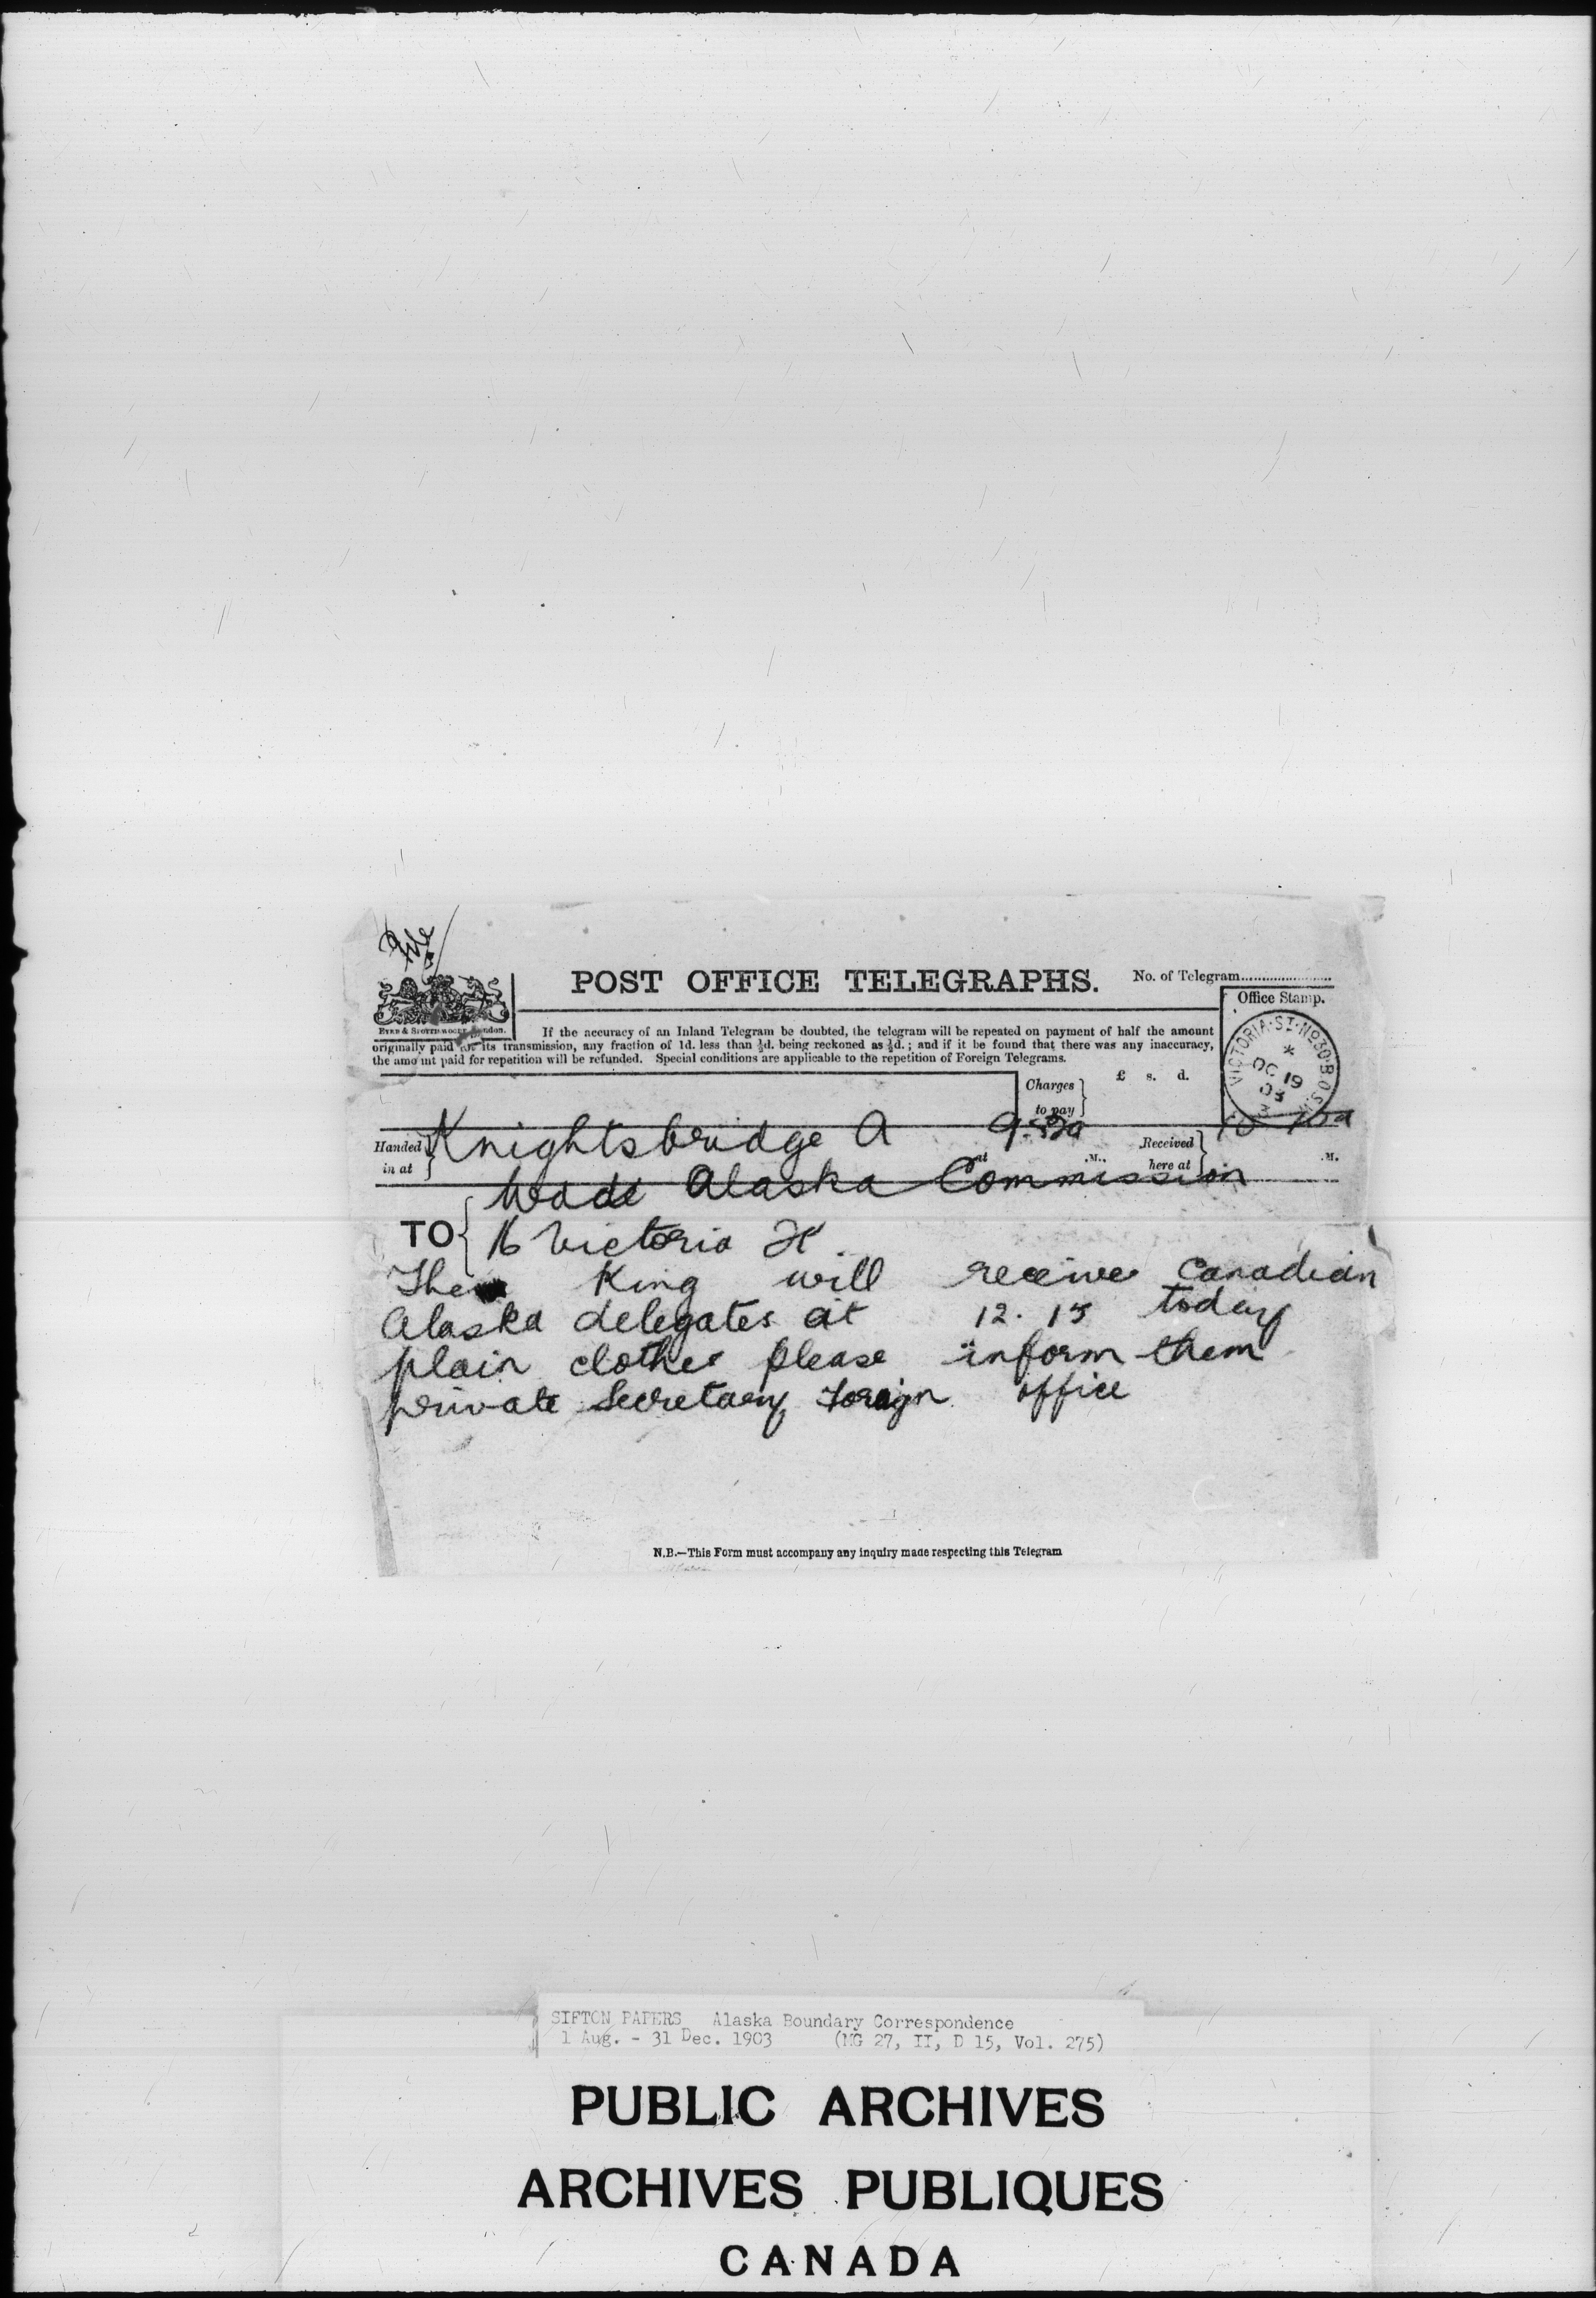 POST OFFICE TELEGRAPHS.
No. of Telegram
Office Stamp.
EYRE & SPOTTISWOODE, London.
If the accuracy of an Inland Telegram be doubted, the telegram will be repeated on payment of half the amount
originally paid for its transmission, any fraction of 1d. less than ½d. being reckoned as ½d.; and if it be found that there was any inaccuracy,
the amount paid for repetition will be refunded. Special conditions are applicable to the repetition of Foreign Telegrams.
VICTORIA·ST·No30·B.O.S.W.
OC 19
03
Charges to pay
£ s. d.
Handed in at
Knightsbridge A
at
.M.,
Received here at
.M.
TO
Wade Alaska Commission
16 Victoria St
The King will receive Canadian
Alaska delegates at 12.15 today
plain clothes please inform them
private Secretary foreign office
N.B.—This Form must accompany any inquiry made respecting this Telegram
SIFTON PAPERS Alaska Boundary Correspondence
1 Aug. - 31 Dec. 1903 (MG 27, II, D 15, Vol. 275)
PUBLIC ARCHIVES
ARCHIVES PUBLIQUES
CANADA